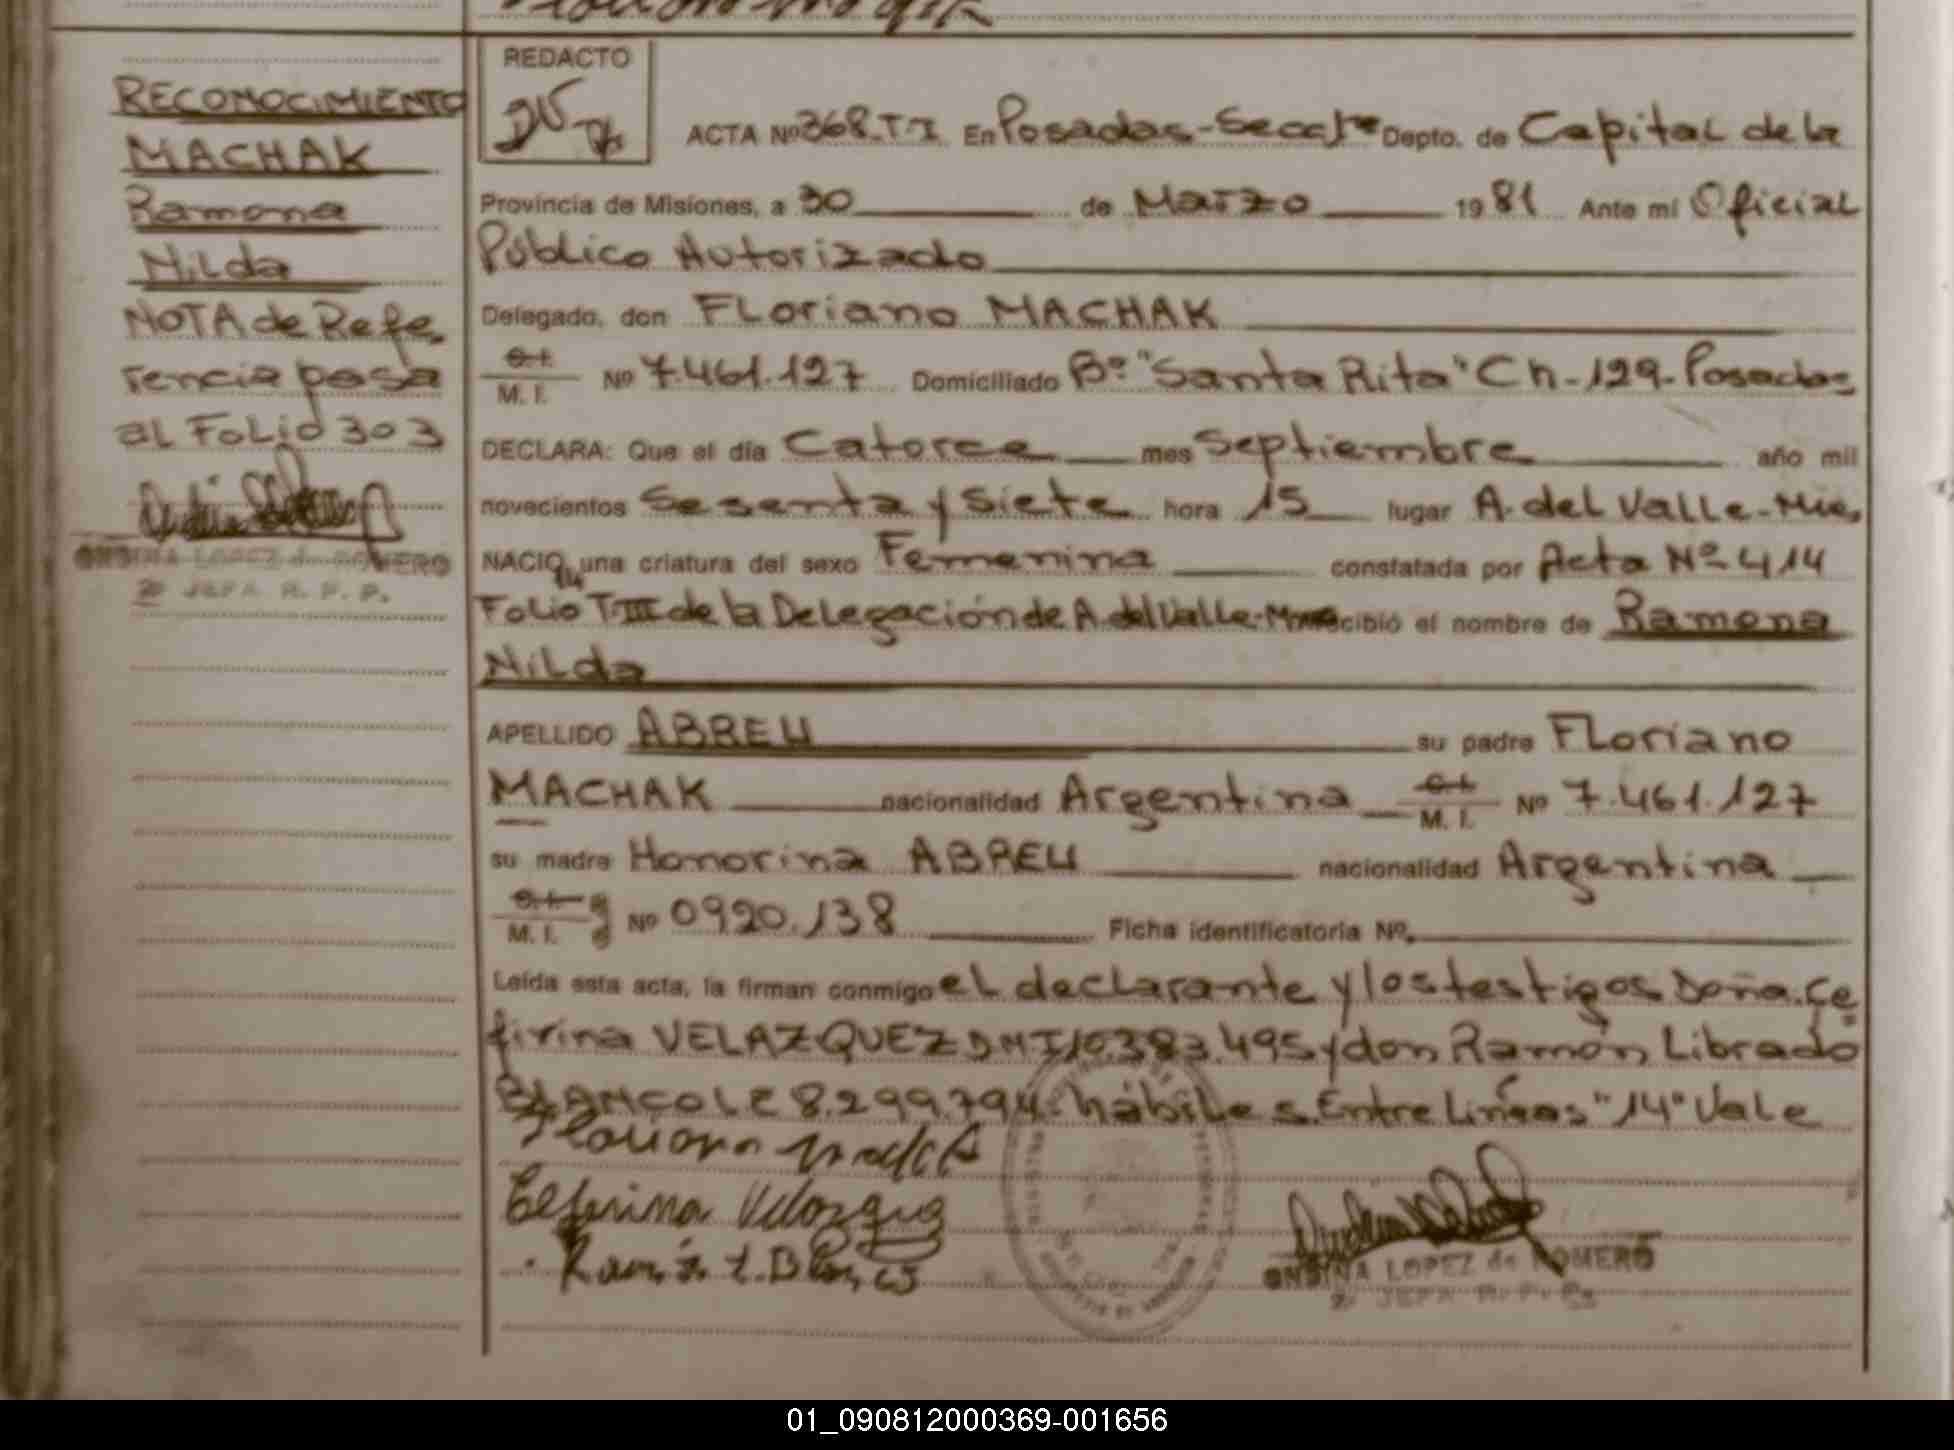 RECONOCIMIENTO
MACHAK
Ramona
Nilda
NOTA de Refe
rencia pasa
al FoLio 303
ONDINA LOPEZ de ROMERO
2º JEFA R. P. P.
REDACTO
ACTA Nº 368.T.I En Posadas-Secc 1ra Depto. de Capital de la
Provincia de Misiones, a 30 de Marzo 1981 Ante mi Oficial
Público Autorizado
Delegado, don FLoriano MACHAK
C.I.
M. I. Nº 7.461.127 Domiciliado Bº "Santa Rita" Ch-129-Posadas
DECLARA: Que el día Catorce mes Septiembre año mil
novecientos Sesenta y Siete hora 15 lugar A. del Valle-Mnes
NACIO una criatura del sexo Femenina constatada por Acta Nº 414
14
Folio T.III de la Delegación de A. del Valle-Mnes recibió el nombre de Ramona
Nilda
APELLIDO ABREU su padre FLoriano
MACHAK nacionalidad Argentina C.I.
M. I. Nº 7.461.127
su madre Honorina ABREU nacionalidad Argentina
C.I.
M. I. Nº 0920.138 Ficha identificatoria Nº.
Leída esta acta, la firman conmigo el declarante y los testigos Doña Ce
firina VELAZQUEZ DNI 10.383.495 y don Ramón Librado
BLANCO LE 8.299.794. hábiles. Entre Líneas "14" Vale
Ceferina Velazquez
Ramón L. Blanco
ONDINA LOPEZ de ROMERO
2º JEFA R. P. P.
01_090812000369-001656